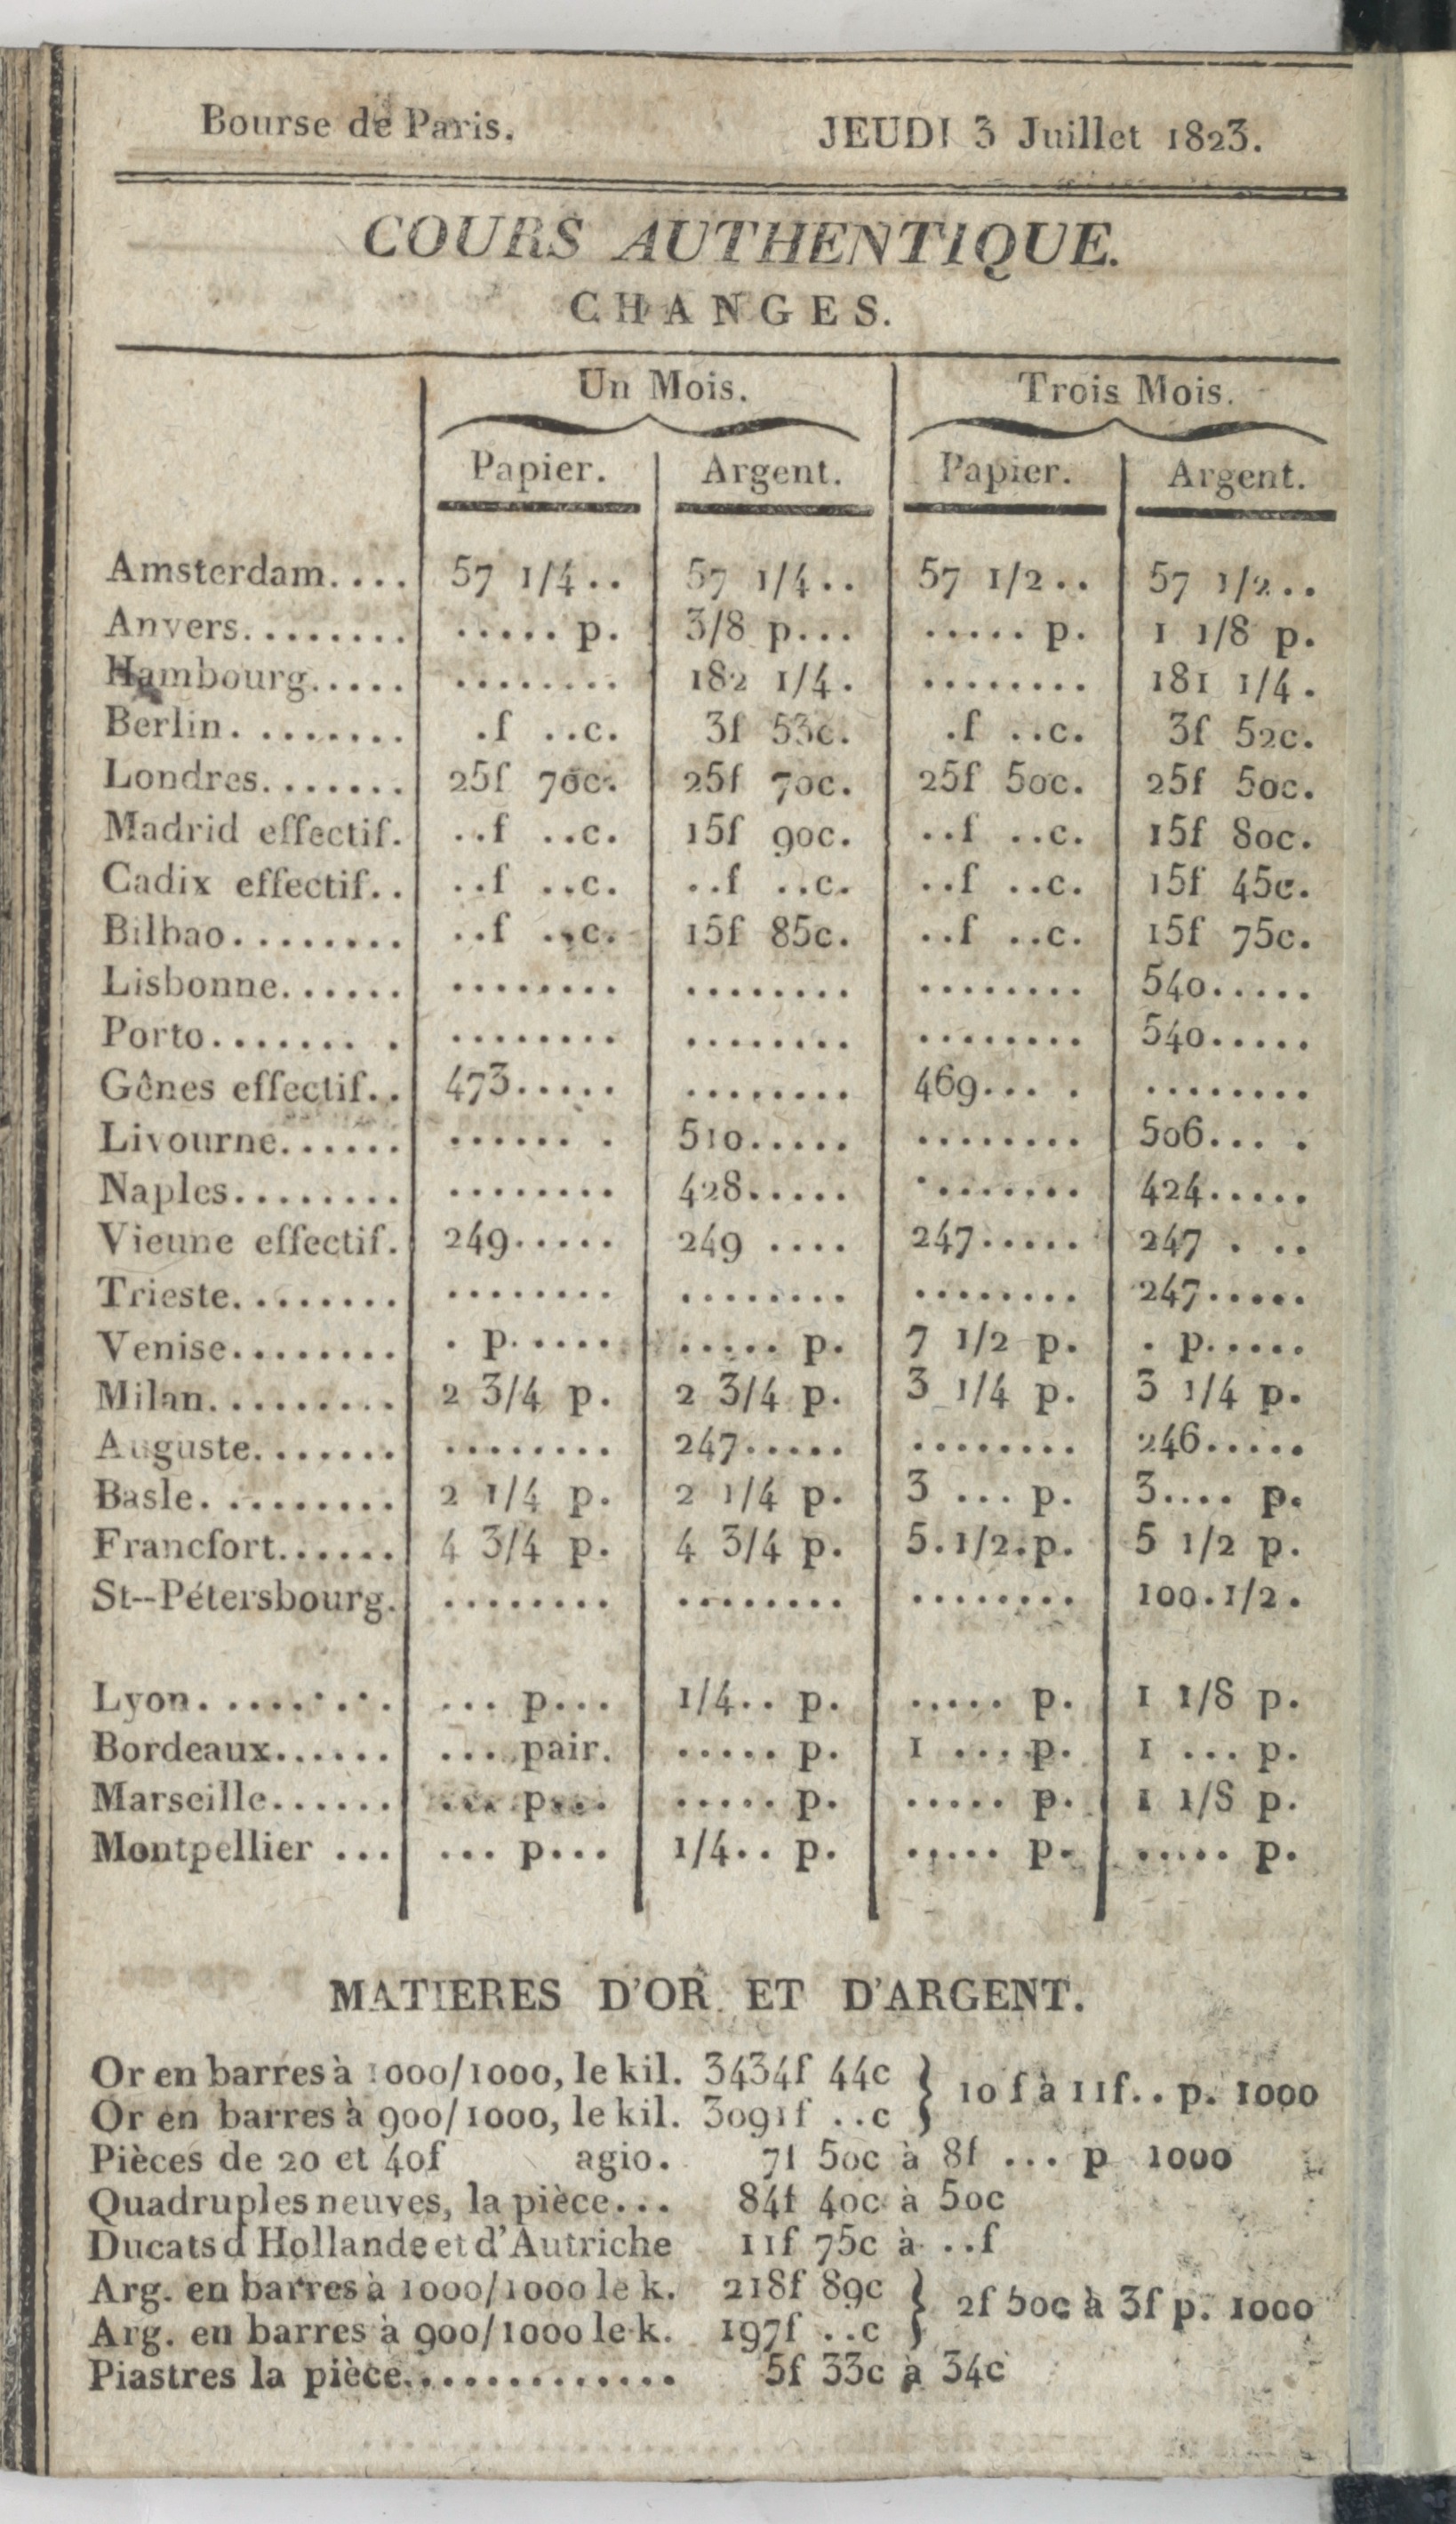 Bourse de Paris. JEUDI 3 Juillet 1823.
COURS AUTHENTIQUE.
CHANGES.
Un Mois. Trois Mois.
Papier. Argent. Papier. Argent.
Amsterdam.... 57 1/4.. 57 1/4.. 57 1/2.. 57 1/2..
Anvers........ ..... p. 3/8 p... ..... p. 1 1/8 p.
Hambourg..... ........ 182 1/4. ........ 181 1/4.
Berlin. ....... .f ..c. 3f 53c. .f ..c. 3f 52c.
Londres....... 25f 70c. 25f 70c. 25f 50c. 25f 50c.
Madrid effectif. ..f ..c. 15f 90c. ..f ..c. 15f 80c.
Cadix effectif.. ..f ..c. ..f ..c. ..f ..c. 15f 45c.
Bilbao........ ..f ..c. 15f 85c. ..f ..c. 15f 75c.
Lisbonne...... ........ ........ ........ 540.....
Porto....... . ........ ........ ........ 540.....
Gênes effectif.. 473..... ........ 469... . ........
Livourne...... ...... . 510..... ........ 506... .
Naples........ ........ 428..... ........ 424.....
Vieune effectif. 249..... 249 .... 247..... 247 . ..
Trieste........ ........ ........ ........ 247.....
Venise........ . p..... ..... p. 7 1/2 p. . p.....
Milan......... 2 3/4 p. 2 3/4 p. 3 1/4 p. 3 1/4 p.
Auguste....... ........ 247..... ........ 246.....
Basle. ........ 2 1/4 p. 2 1/4 p. 3 ... p. 3.... p.
Francfort...... 4 3/4 p. 4 3/4 p. 5.1/2.p. 5 1/2 p.
St--Pétersbourg. ........ ........ ........ 100.1/2.
Lyon. ........ ... p... 1/4.. p. ..... p. 1 1/8 p.
Bordeaux...... ... pair. ..... p. 1 ... p. 1 ... p.
Marseille...... ... p... ..... p. ..... p. 1 1/8 p.
Montpellier ... ... p... 1/4.. p. ..... p. ..... p.
MATIERES D'OR ET D'ARGENT.
Or en barres à 1000/1000, le kil. 3434f 44c } 10 f à 11f.. p. 1000
Or en barres à 900/1000, le kil. 3091f ..c
Pièces de 20 et 40f agio. 7f 50c à 8f ... p 1000
Quadruples neuves, la pièce... 84f 40c à 50c
Ducats d Hollande et d'Autriche 11f 75c à ..f
Arg. en barres à 1000/1000 le k. 218f 89c } 2f 50c à 3f p. 1000
Arg. en barres à 900/1000 le k. 197f ..c
Piastres la pièce............. 5f 33c à 34c